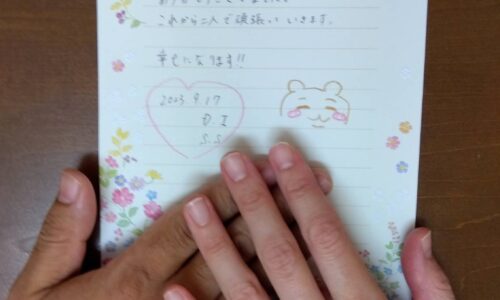 これから二人で頑張っていきます。
幸せになります!!
2023 9.17
D.I
S.S